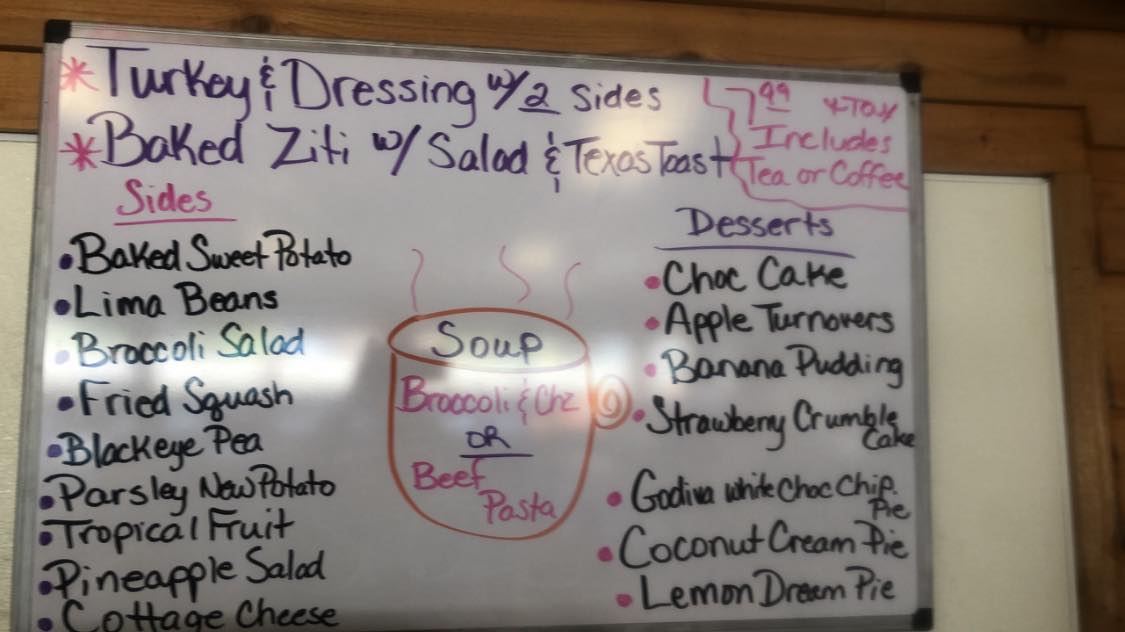 * Turkey & Dressing w/ 2 Sides
* Baked Ziti w/ Salad & Texas Toast
7 99 + TAX
Includes
Tea or Coffee
Sides
• Baked Sweet Potato
• Lima Beans
• Broccoli Salad
• Fried Squash
• Blackeye Pea
• Parsley New Potato
• Tropical Fruit
• Pineapple Salad
• Cottage Cheese
Soup
Broccoli & Chz
OR
Beef
Pasta
Desserts
• Choc Cake
• Apple Turnovers
• Banana Pudding
• Strawberry Crumble
Cake
• Godiva white Choc Chip
Pie
• Coconut Cream Pie
• Lemon Dream Pie